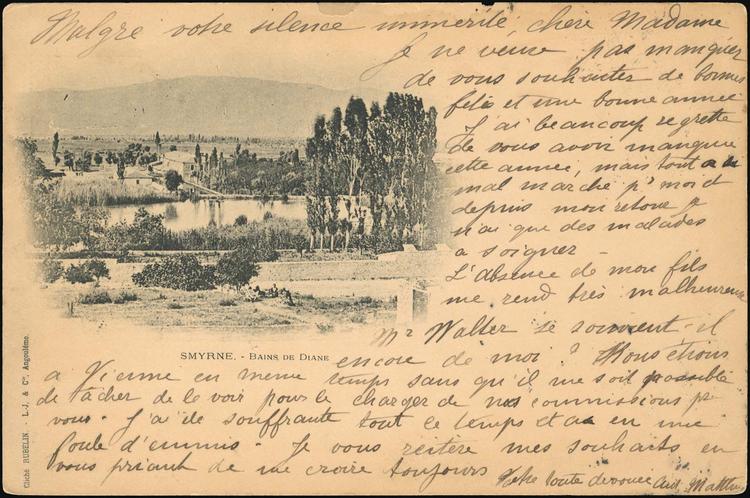 Malgre votre silence immerité, chère Madame
Je ne veux pas manquer
de vous souhaiter de bonnes
fêtes et une bonne année
J'ai beaucoup regretté
de vous avoir manquée
cette année, mais tout a
mal marché pr moi
depuis mon retour je
n'ai que des malades
a soigner -
L'absence de mon fils
me rend très malheureuse
Mr Walter se souvient-il
SMYRNE. - BAINS DE DIANE
encore de moi? Nous étions
a Vienne en meme temps sans qu'il me soit possible
de tâcher de le voir pour le charger de mes commissions pr
vous. J'ai été souffrante tout le temps et eu une
foule d'ennuis - Je vous reitere mes souhaits en
vous priant de me croire toujours
Votre toute devouée
Cliché RUBELLIN. - L.-J. & Cie, Angoulême.